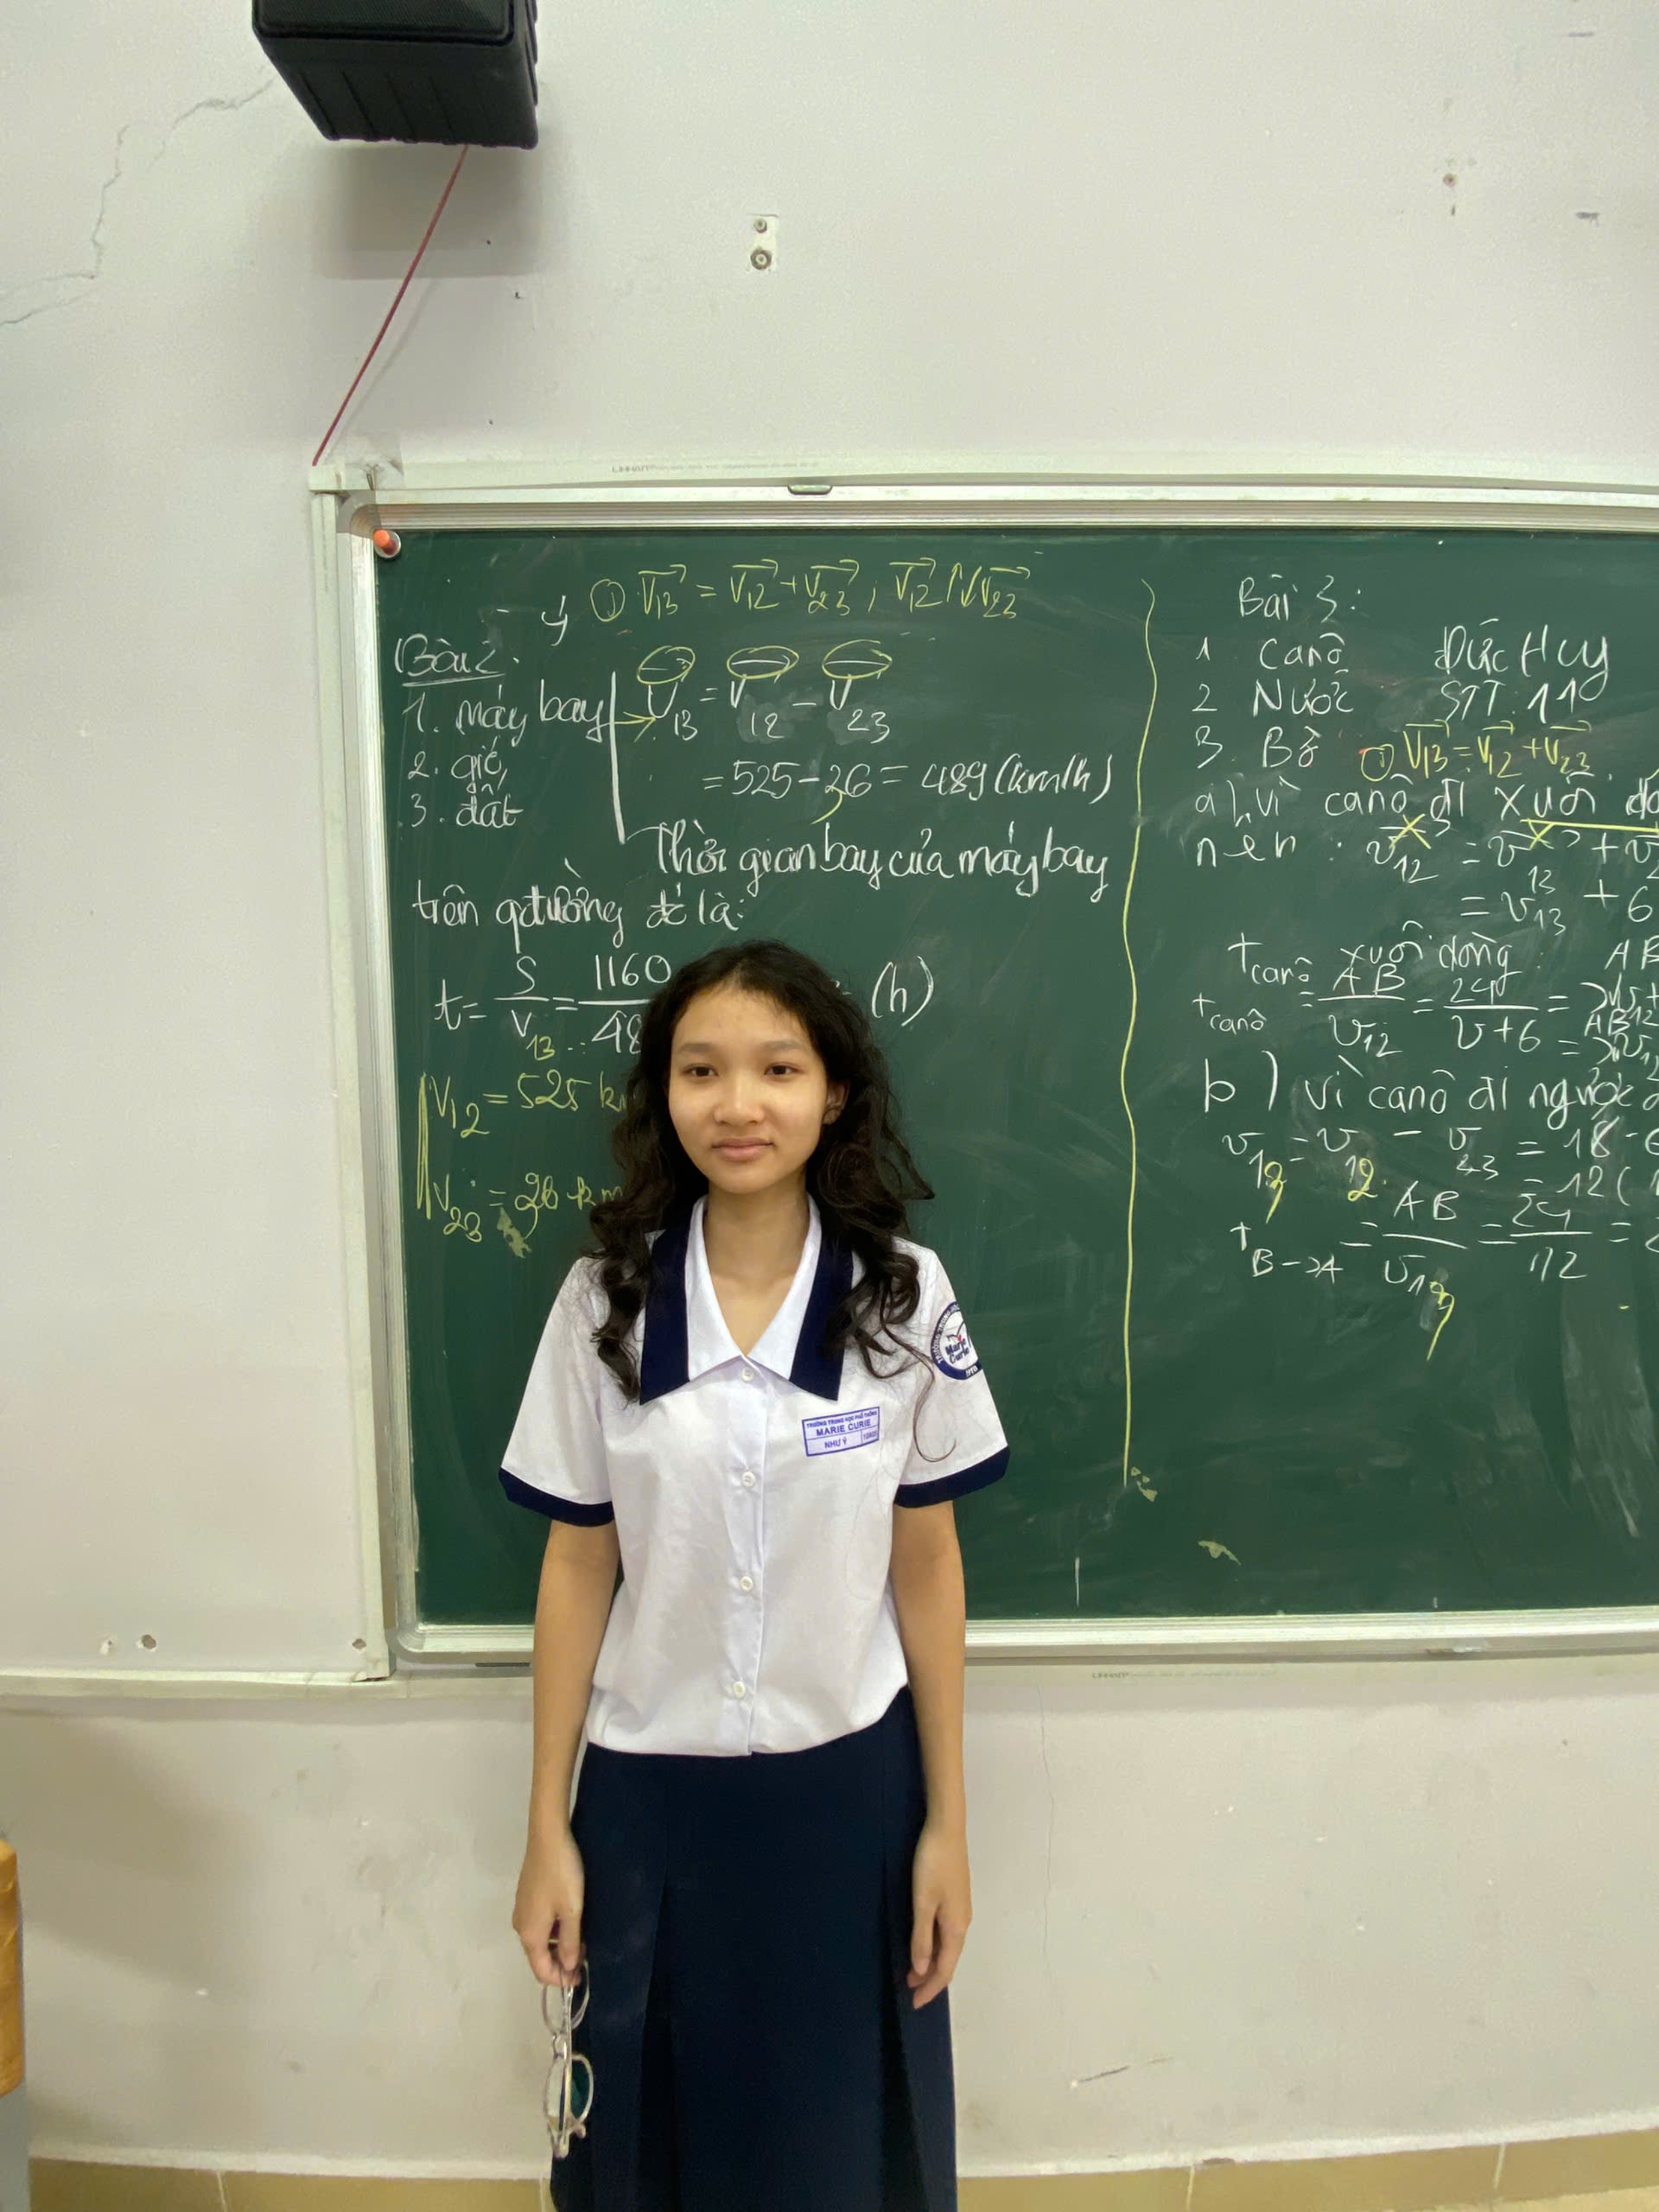 ý ① V13 = V12 + V23, V12 ↑↓ V23
Bài 2.
1. máy bay
2. gió
3. đất
V13 = V12 - V23
= 525 - 36 = 489 (km/h)
Thời gian bay của máy bay
trên qđường đó là:
t = S / V13 = 1160 / 48
(h)
V12 = 525 k
V23 = 36 km
Bài 3:
1 Canô
2 Nước
3. Bờ
Đức Huy
STT: 11
① V13 = V12 + V23
a) vì canô đi xuôi
nên : v12 = v13 +
= v13 + 6
t canô xuôi dòng: AB
t canô = AB / v12 = 24 / v+6 =
b) vì canô đi ngược
v13 = v12 - v23 = 18 -
= 12 (
t B->A = AB / v13 = 24 / 12 =
TRƯỜNG TRUNG HỌC PHỔ THÔNG
MARIE CURIE
NHƯ Ý
Marie
Curie